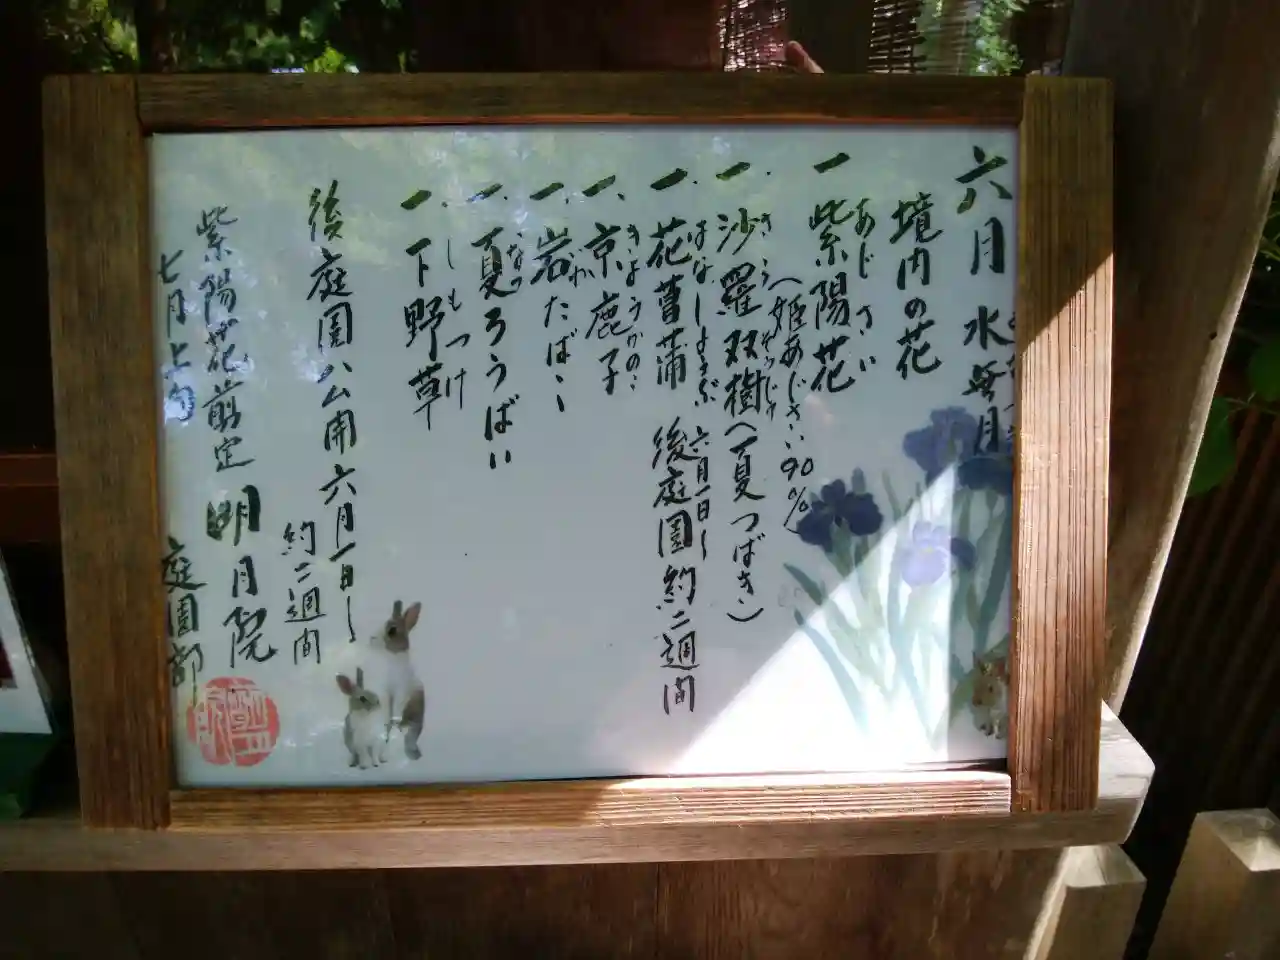 六月 水無月
境内の花
一 紫陽花
あじさい
(姫あじさい90%)
一. 沙羅双樹(夏つばき)
さらそうじゅ
一. 花菖蒲 後庭園 約二週間
はなしょうぶ 六月一日〜
一. 京鹿子
きょうかのこ
一. 岩たばこ
いわ
一. 夏ろうばい
なつ
一. 下野草
しもつけ
後庭園公開 六月一日〜
約二週間
紫陽花剪定 明月院
七月上旬 庭園部